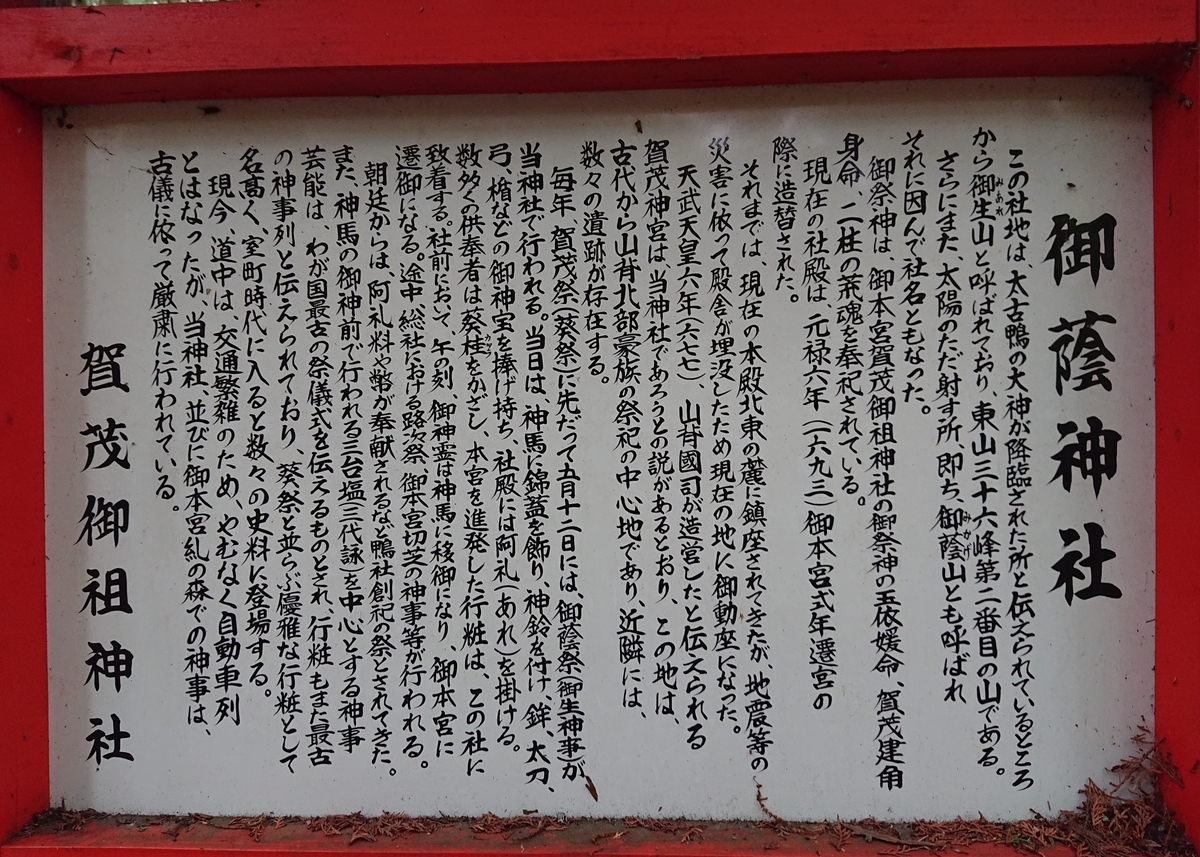 御蔭神社
この社地は、太古鴨の大神が降臨された所と伝えられているところ
から御生山と呼ばれており、東山三十六峰第二番目の山である。
みあれ
さらにまた、太陽のただ射す所、即ち、御蔭山とも呼ばれ
みかげ
それに因んで社名ともなった。
御祭神は、御本宮賀茂御祖神社の御祭神の玉依媛命、賀茂建角
身命 二柱の荒魂を奉祀されている。
現在の社殿は 元禄六年(一六九三)御本宮式年遷宮の
際に造替された。
それまでは、現在の本殿北東の麓に鎮座されてきたが、地震等の
災害に依って殿舎が埋没したため現在の地に御動座になった。
天武天皇六年(六七七)、山背國司が造営したと伝えられる
賀茂神宮は、当神社であろうとの説があるとおり、この地は、
古代から山背北部豪族の祭祀の中心地であり、近隣には、
数々の遺跡が存在する。
毎年、賀茂祭(葵祭)に先だって五月十二日には、御蔭祭(御生神事)が
当神社で行われる。当日は、神馬に錦蓋を飾り、神鈴を付け、鉾、太刀、
弓、楯などの御神宝を捧げ持ち、社殿には阿礼(あれ)を掛ける。
数多くの供奉者は葵桂をかざし、本宮を進発した行粧は、この社に
カツラ
致着する。社前において、午の刻、御神霊は神馬に移御になり、御本宮に
遷御になる。途中、総社における路次祭、御本宮切芝の神事等が行われる。
朝廷からは、阿礼料や幣が奉献されるなど鴨社創祀の祭とされてきた。
また、神馬の御神前で行われる三台塩三代詠)を中心とする神事
芸能は、わが国最古の祭儀式を伝えるものとされ、行粧もまた最古
の神事列と伝えられており、葵祭と並らぶ優雅な行粧として
名高く、室町時代に入ると数々の史料に登場する。
現今、道中は、交通繁雑のため、やむなく自動車列
とはなったが、当神社、並びに御本宮糺の森での神事は、
古儀に依って厳粛に行われている。
賀茂御祖神社